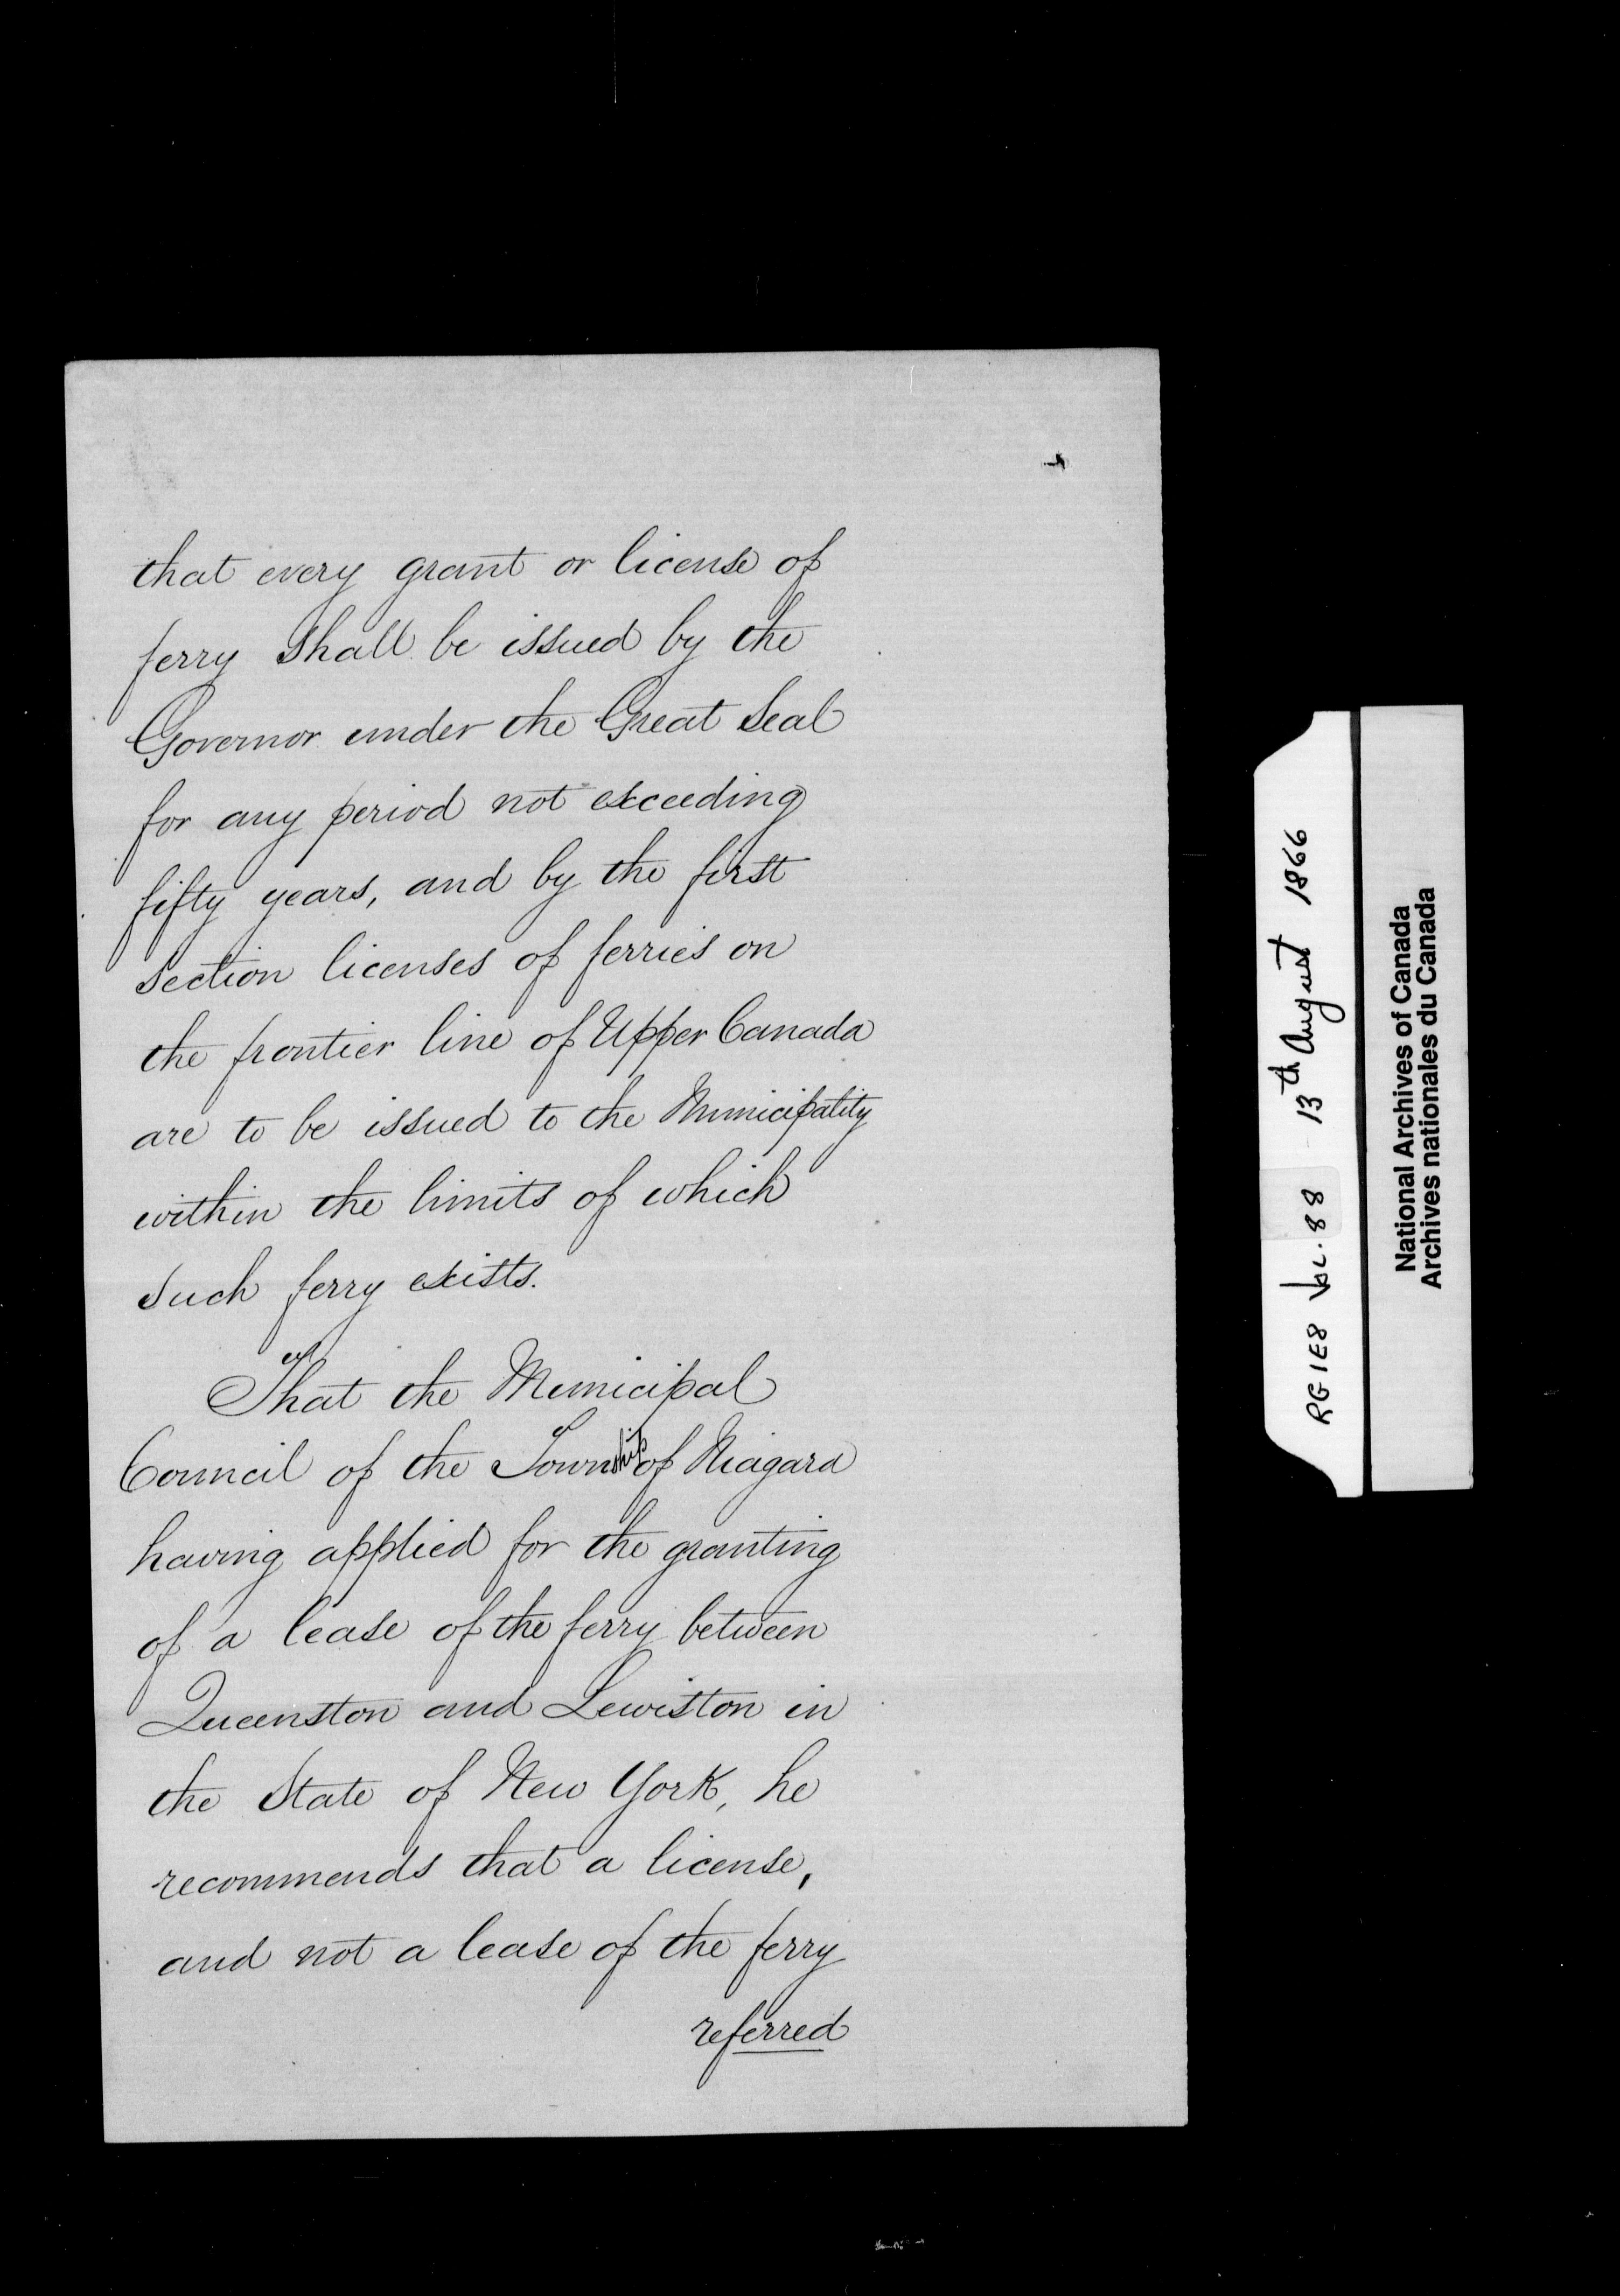 that every grant or license of
ferry shall be issued by the
Governor under the Great Seal
for any period not exceeding
fifty years, and by the first
section licenses of ferries on
the frontier line of Upper Canada
are to be issued to the Municipality
within the limits of which
such ferry exists.
That the Municipal
Council of the Township of Niagara
having applied for the granting
of a lease of the ferry between
Queenston and Lewiston in
the State of New York, he
recommends that a license,
and not a lease of the ferry
referred
RG1E8 Vol. 88 13th August 1866
National Archives of Canada
Archives nationales du Canada